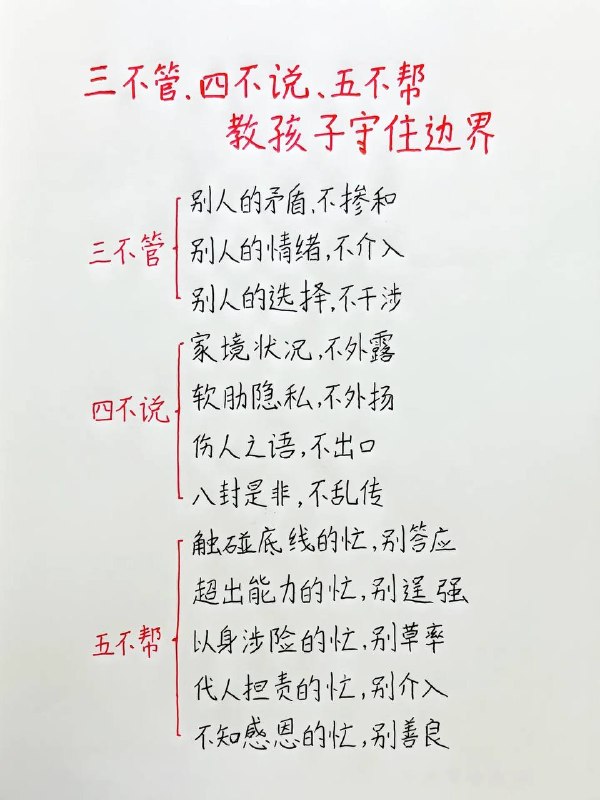 三不管、四不说、五不帮
教孩子守住边界
三不管
别人的矛盾,不掺和
别人的情绪,不介入
别人的选择,不干涉
四不说
家境状况,不外露
软肋隐私,不外扬
伤人之语,不出口
八封是非,不乱传
五不帮
触碰底线的忙,别答应
超出能力的忙,别逞强
以身涉险的忙,别草率
代人担责的忙,别介入
不知感恩的忙,别善良